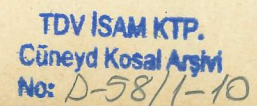 TDV İSAM KTP.
Cüneyd Kosal Arşivi
No: D-58/1-10